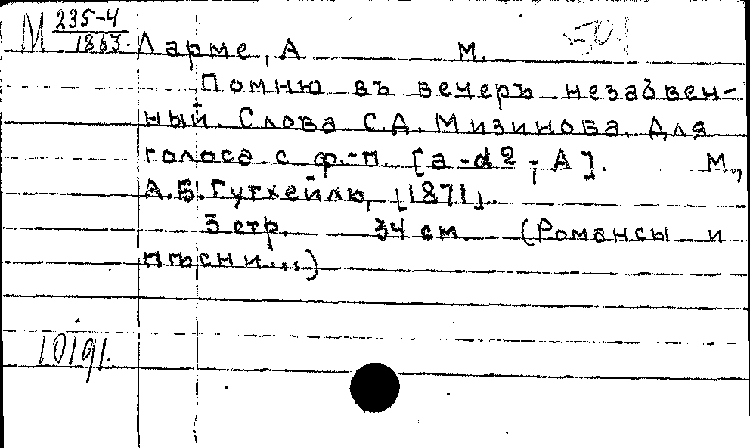 М 235-4
1863.
Ларме, А М.
Помню въ вечеръ незабвен-
ный. Слова С.Д. Мизинова. Для
голоса с ф.-п. [a-d2; A]. М.,
А.Б. Гутхейль, [1871].
3 стр. 34 см. (Романсы и
пѣсни...)
10191.